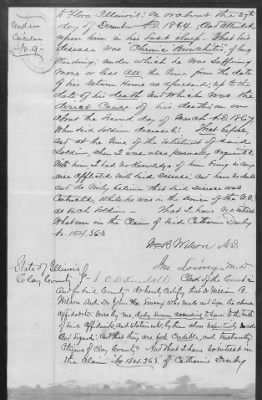 Medical
N.G.
of Flora Illinois: on or about the 27th
day of December A.D. 1864. And attended
upon him in his last sickness. That his
disease was Chronic Bronchitis of long
standing, under which he was suffering
more or less All the time from the date
of his return home as aforesaid, up to the
date of his death, And which was the
direct Cause of his death, on or
about the second day of March A.D. 1867.
When said soldier deceased. That before,
and at the time of the enlistment of said
Soldier when I was also personally acquainted
With him, I had no Knowledge of him being in any
wise afflicted with said disease, And have no doubt
but do verily believe that said disease was
Contracted, while he was in the service of the U.S.
as such soldier. That I have no interest
Whatever in the Claim of said Catharine
No 154,363
Wm B. Wilson M.D.
Jno M.D.
State of Illinois
Clay County Clerk of the Court in
And for said County do hereby Certify, that Dr William B.
Wilson And Dr John who made and sign the above
affidavits. Were by me duly sworn according to law to the truth
of said Affidavits, and statements, by them above respectively made
And signed: And that they are both Credible, and trustworthy
Citizens of Clay County. And that I have no interest in
the Claim No 154,363 of Catharine